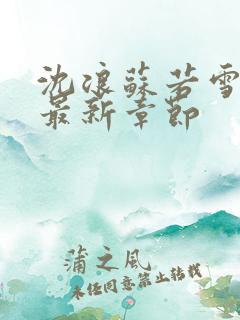 沈浪蘇若雪
最新章節
蒲之风
未经同意禁止转载